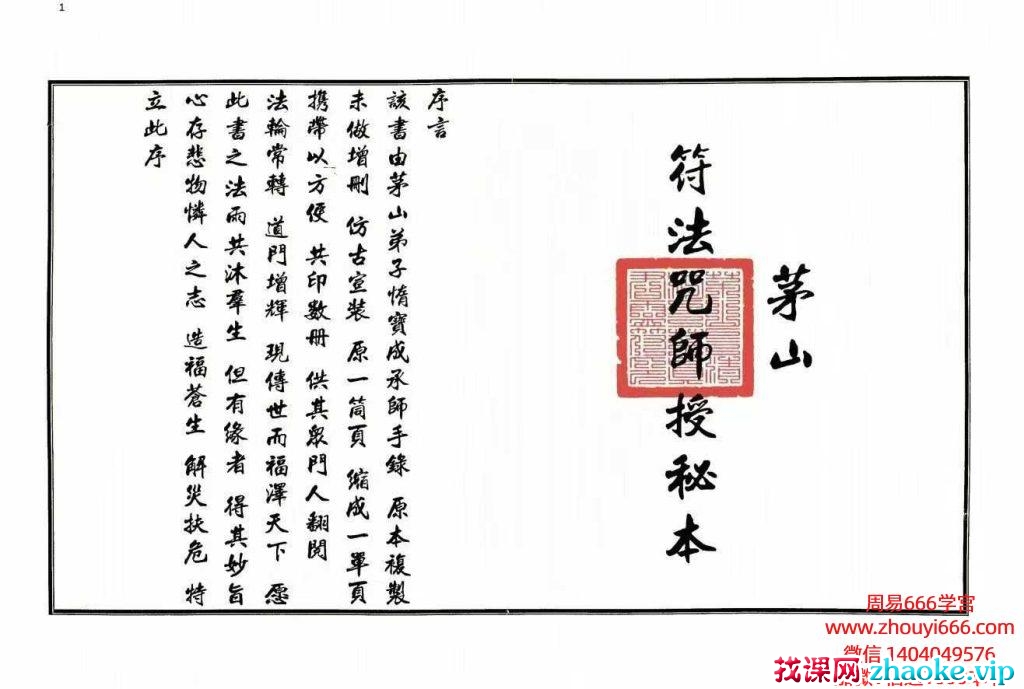 1
茅山
符法咒師授秘本
序言
該書由茅山弟子惰寶成承師手錄 原本複製
未做增刪 仿古宣裝 原一筒頁 縮成一單頁
携帶以方便 共印数册 供其眾門人翻閱
法輪常轉 道門增輝 現傳世而福澤天下 愿
此書之法雨共沐羣生 但有缘者 得其妙旨
心存悲物憐人之志 造福蒼生 解災扶危 特
立此序
周易666学宫
www.zhouyi666.com
微信 1404049576
找课网zhaoke.vip